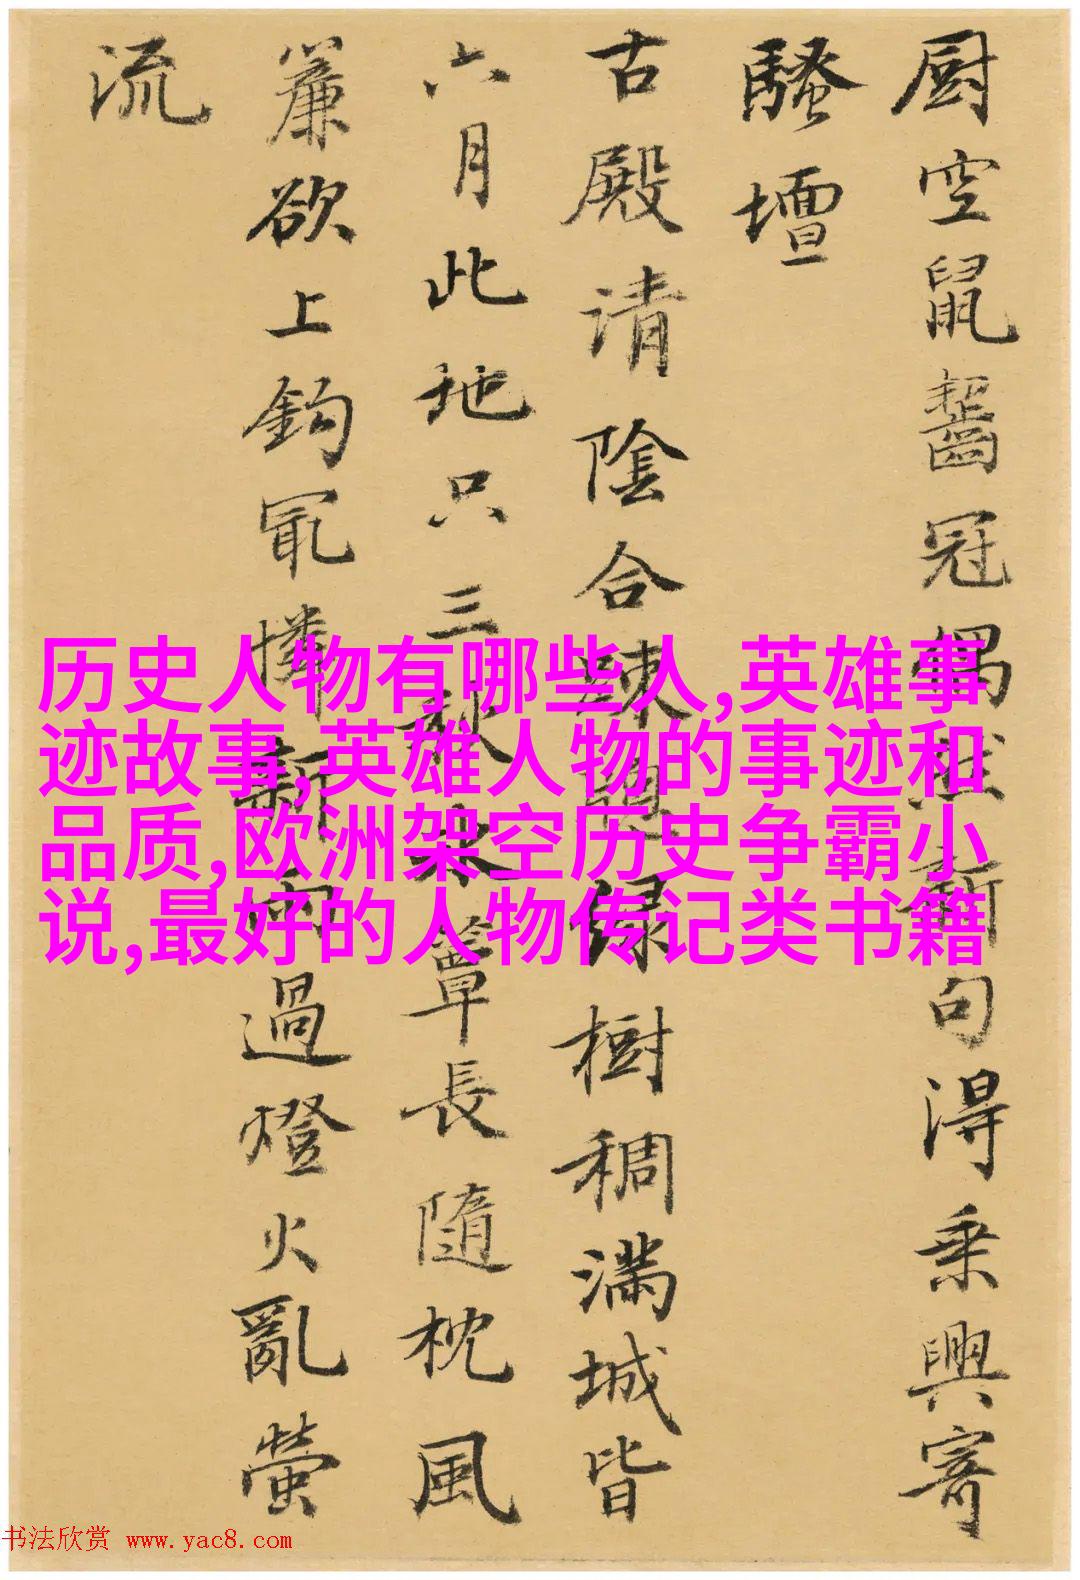 厨空鼠齧冠偶然新句得乘興寄
騷壇
古殿清陰合疎緑樹稠滿城皆
六月此地只三秋木簟長隨枕風
簾欲上鈎冣憐新雨過燈火亂螢
流
历史人物有哪些人,英雄事
迹故事,英雄人物的事迹和
品质,欧洲架空历史争霸小
说,最好的人物传记类书籍
书法欣赏 www.yac8.com